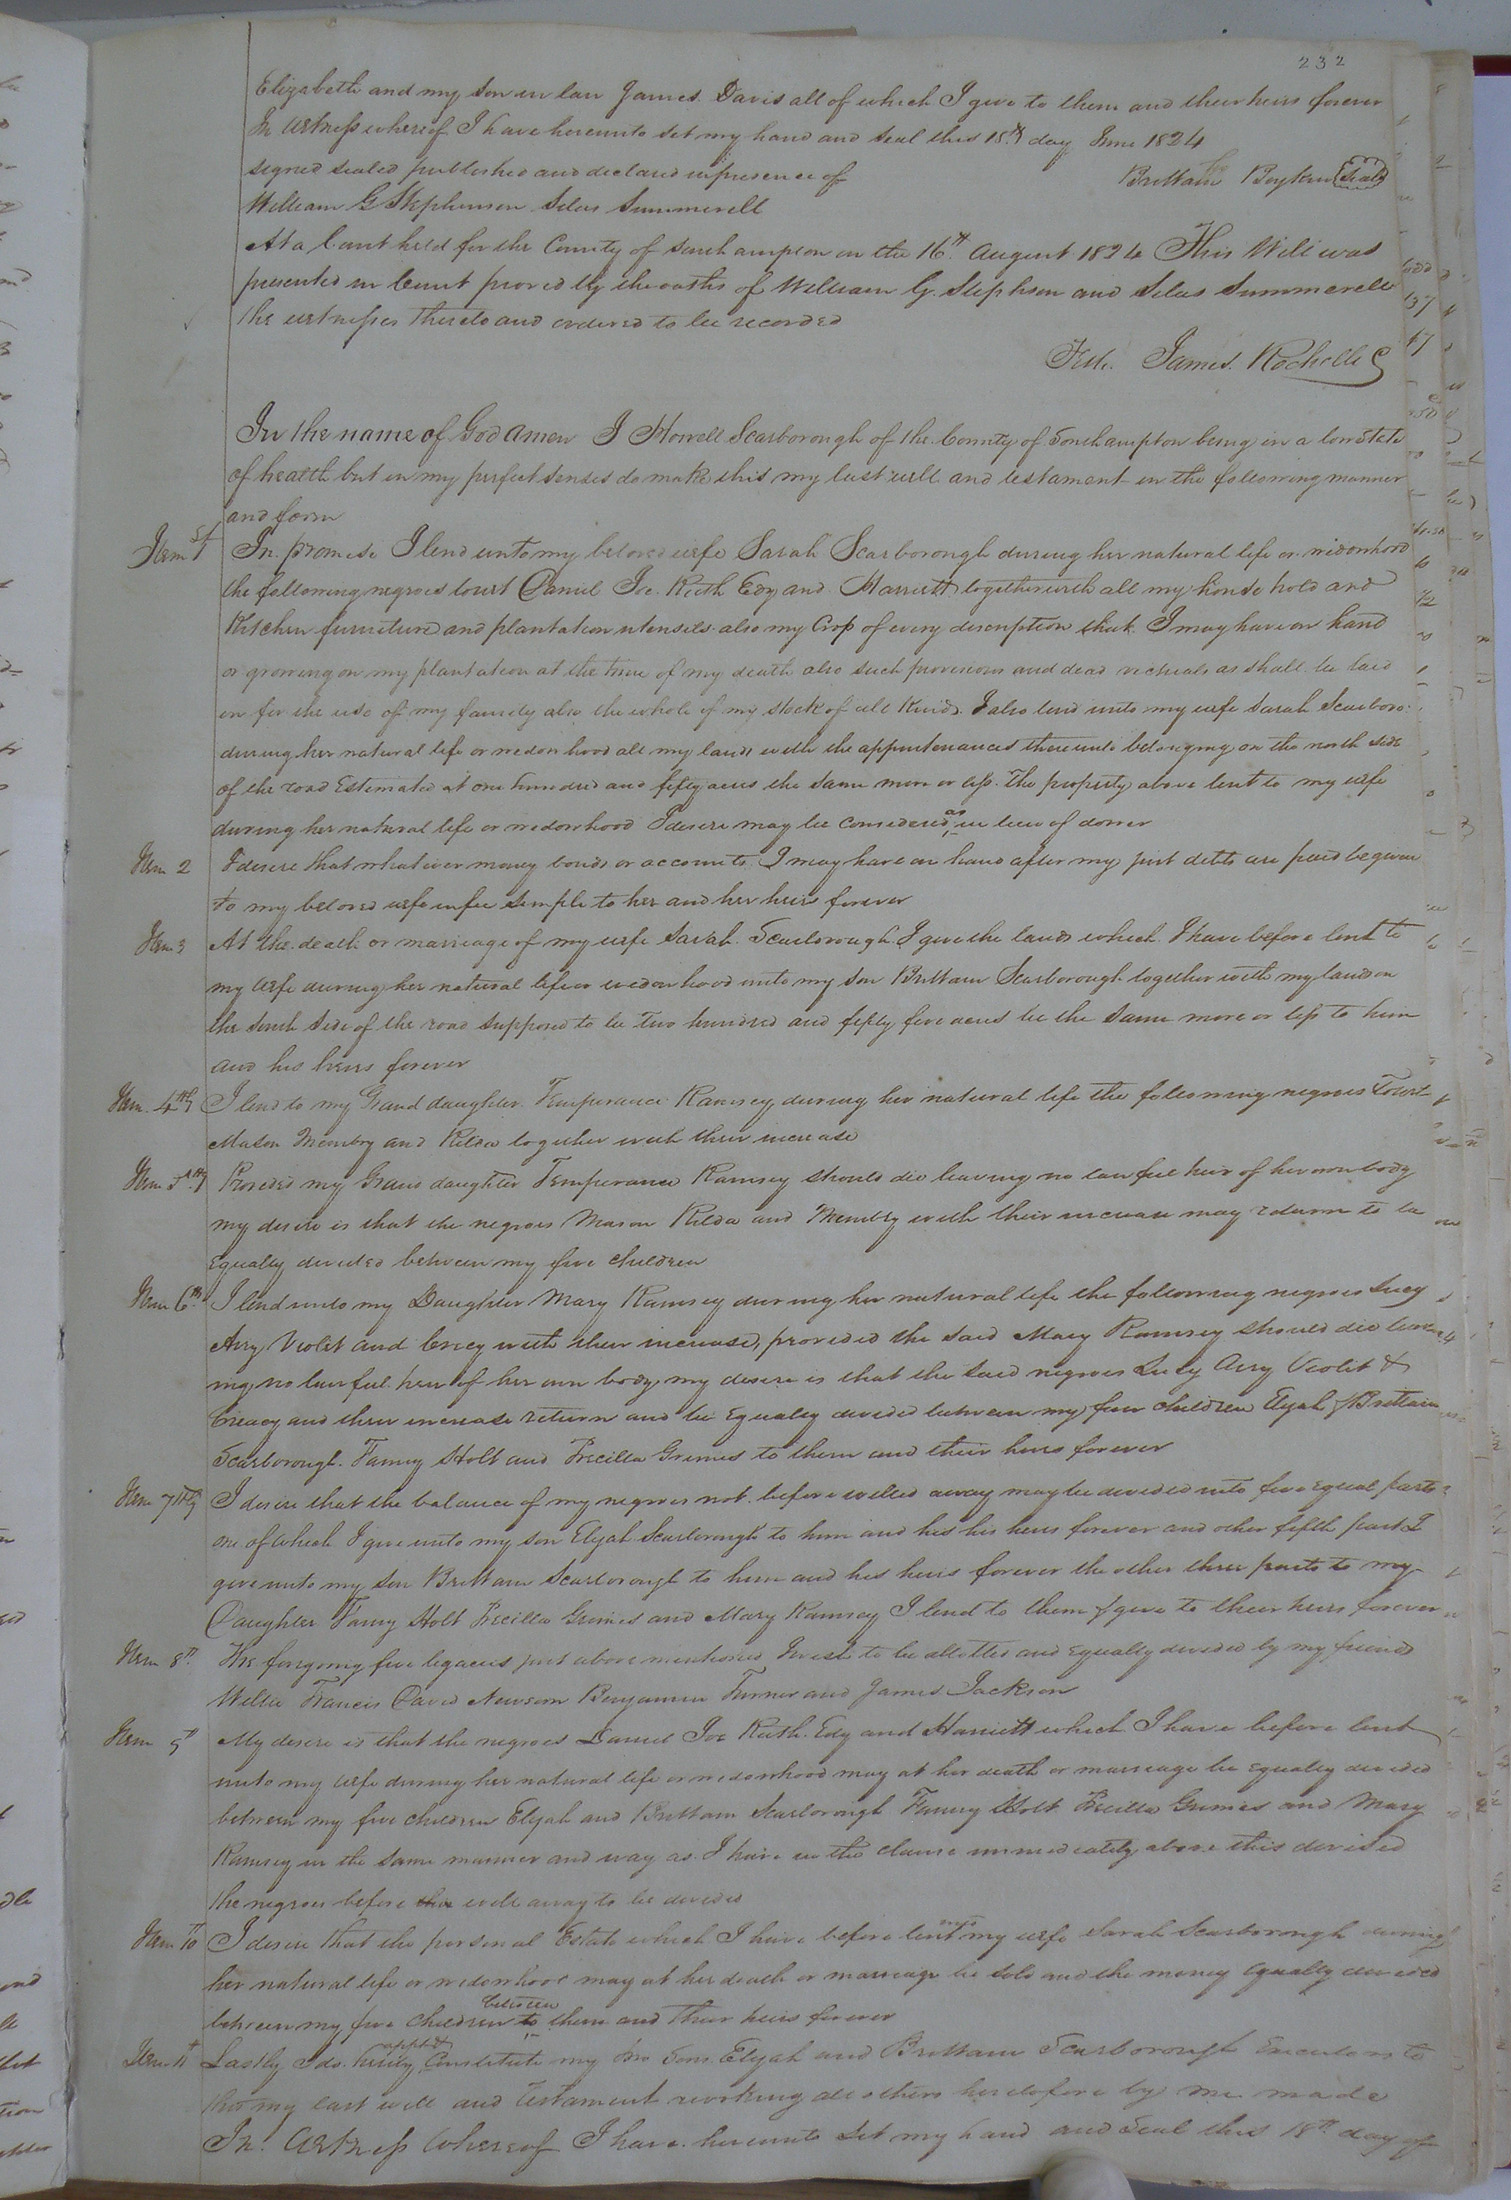 232
Elizabeth and my son in law James Davis all of which I give to them and their heirs forever
In Witness whereof I have hereunto set my hand and seal this 18th day June 1824
signed sealed published and declared in presence of Brittain Boykin Seal
William G Stephenson Silas Summerell
At a Court held for the County of Southampton on the 16th August 1824 This Will was
presented in Court proved by the oaths of William G. Stephson and Silas Summerell
the witnesses thereto and ordered to be recorded
Teste. James Rochelle C
In the name of God Amen I Howell Scarborough of the County of Southampton being in a low State
of health but in my perfect senses do make this my last will and testament in the following manner
and form
Item 1st In promise I lend unto my beloved wife Sarah Scarborough during her natural life or widowhood
the following negroes towit Daniel Joe Ruth Edy and Harriett together with all my house hold and
Kitchen furniture and plantation utensils also my Crop of every description that I may have on hand
or growing on my plantation at the time of my death also such provisions and dead victuals as shall be laid
in for the use of my family also the whole of my stock of all kinds. I also lend unto my wife Sarah Scarboro:
during her natural life or widowhood all my lands with the appurtenances thereunto belonging on the north side
of the road Estimated at one hundred and fifty acres the same more or less. The property above lent to my wife
during her natural life or widowhood I desire may be considered as in lieu of dower
Item 2 I desire that whatever money bonds or accounts I may have on hand after my just debts are paid be given
to my beloved wife in fee simple to her and her heirs forever
Item 3 At the death or marriage of my wife Sarah Scarborough I give the lands which I have before lent to
my wife during her natural life or widowhood unto my son Brittain Scarborough together with my land on
the south side of the road supposed to be Two hundred and fifty five acres be the same more or less to him
and his heirs forever
Item 4th I lend to my Grand daughter Temperance Ramsey during her natural life the following negroes Towit
Mason Membry and Rilda together with their increase
Item 5thly Provided my Grand daughter Temperance Ramsey should die leaving no lawful heir of her own body
my desire is that the negroes Mason Rilda and Membry with their increase may return to be
Equally divided between my five children
Item 6th I lend unto my Daughter Mary Ramsey during her natural life the following negroes Lucy
Airy Violet and Creecy with their increase, provided the said Mary Ramsey should die leav
ing no lawful heir of her own body my desire is that the said negroes Lucy Airy Violet &
Creacy and their increase return and be Equally divided between my four children Elijah & Brittain
Scarborough. Fanny Holt and Precilla Grimes to them and their heirs forever
Item 7thly I desire that the balance of my negroes not before willed away may be divided into five equal parts
one of which I give unto my son Elijah Scarborough to him and his his heirs forever and other fifth part I
give unto my son Brittain Scarborough to him and his heirs forever the other three parts to my
Daughter Fanny Holt Precilla Grimes and Mary Ramsey I lend to them & give to their heirs forever
Item 8th The foregoing five legacies just above mentioned I wish to be allotted and Equally divided by my friends
Willie Francis David Newsom Benjamin Turner and James Jackson
Item 9th My desire is that the negroes Daniel Joe Ruth Edy and Harriett which I have before lent
unto my wife during her natural life or widowhood may at her death or marriage be equally divided
between my five children Elijah and Brittain Scarborough Fanny Holt Precilla Grimes and Mary
Ramsey in the same manner and way as I have in the clause immediately above this divided
the negroes before will away to be divided
Item 10th I desire that the personal Estate which I have before lent unto my wife Sarah Scarborough during
her natural life or widowhood may at her death or marriage be sold and the money Equally divided
between my five children between them and their heirs forever
Item 11th Lastly I do hereby appt & Constitute my two Sons Elijah and Brittain Scarborough Executors to
this my last will and testament revoking all others heretofore by me made
In Witness Whereof I have hereunto set my hand and Seal this 18th day of